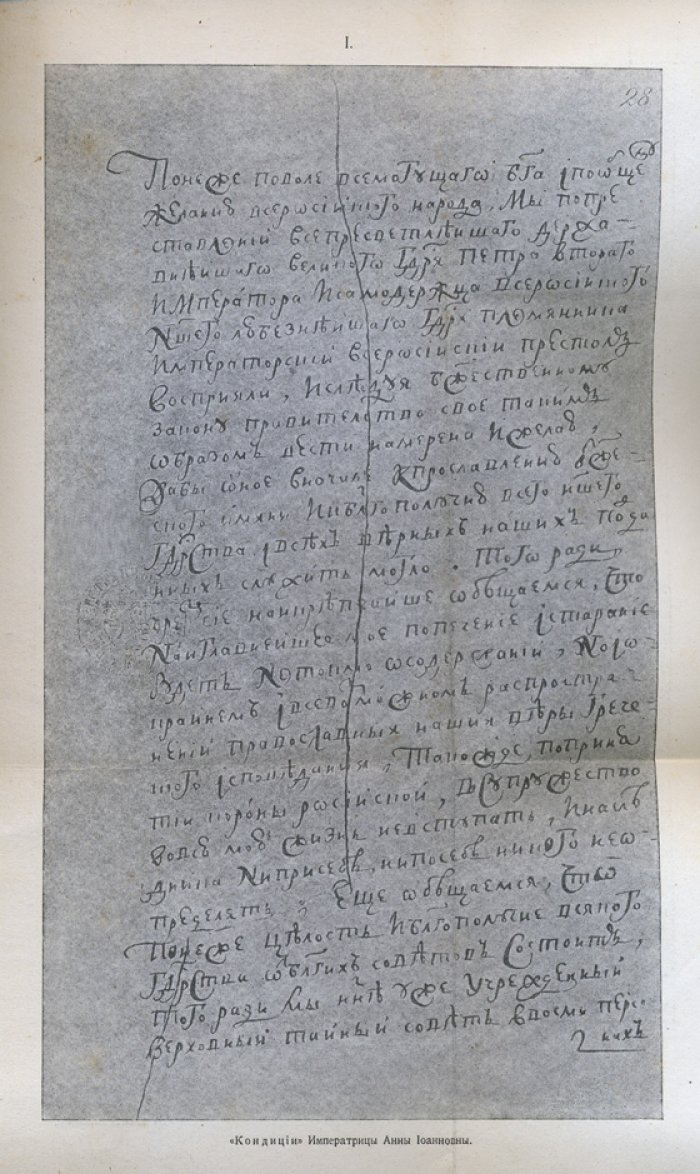 I.
28
Понеже поволе всемогущаго бга іпоѡбще
желанию всеросіиского народа, мы попре
ставлениі всепресветлѣишаго держа-
внѣишаго великого гдря петра второго
императора исамодержца всеросіиского
ншего любезнѣишаго гдря племянника
императорскиі всеросіискиі престолъ
восприяли, іслѣдуя бжественному
закону правителство свое такимъ
ѡбразомъ вести намерена ижелаю,
дабы ѡное вначале кпрославлению бже-
ского имяни икблгополучию всего ншего
гдрства івсѣхъ вѣрныхъ нашихъ подда
нныхъ служить могло. того ради,
чрез сіе наикрѣпчаише ѡбѣщаемся, что
наиглавнеишее мое попечение істарание
будетъ нетокмо ѡсодержаниі, ноіѡ-
краинемъ івсевозможномъ распростра-
нениі православныя нашия вѣры грече-
ского ісповѣдания, такожде, поприня
тиі короны росіискои, всупружество
вовсю мою жизнь невступать, инаслѣ
дника ниприсебѣ, нипосебѣ никого неѡ-
пределять, Еще ѡбѣщаемся, что
понеже цѣлость иблгополучие всякого
гдрства ѿблгихъ совѣтовъ состоитъ,
того ради мы ннѣ уже учрежденныі
верховныі таиныі совѣтъ ввосми персо
нахъ
«Кондиціи» Императрицы Анны Іоанновны.